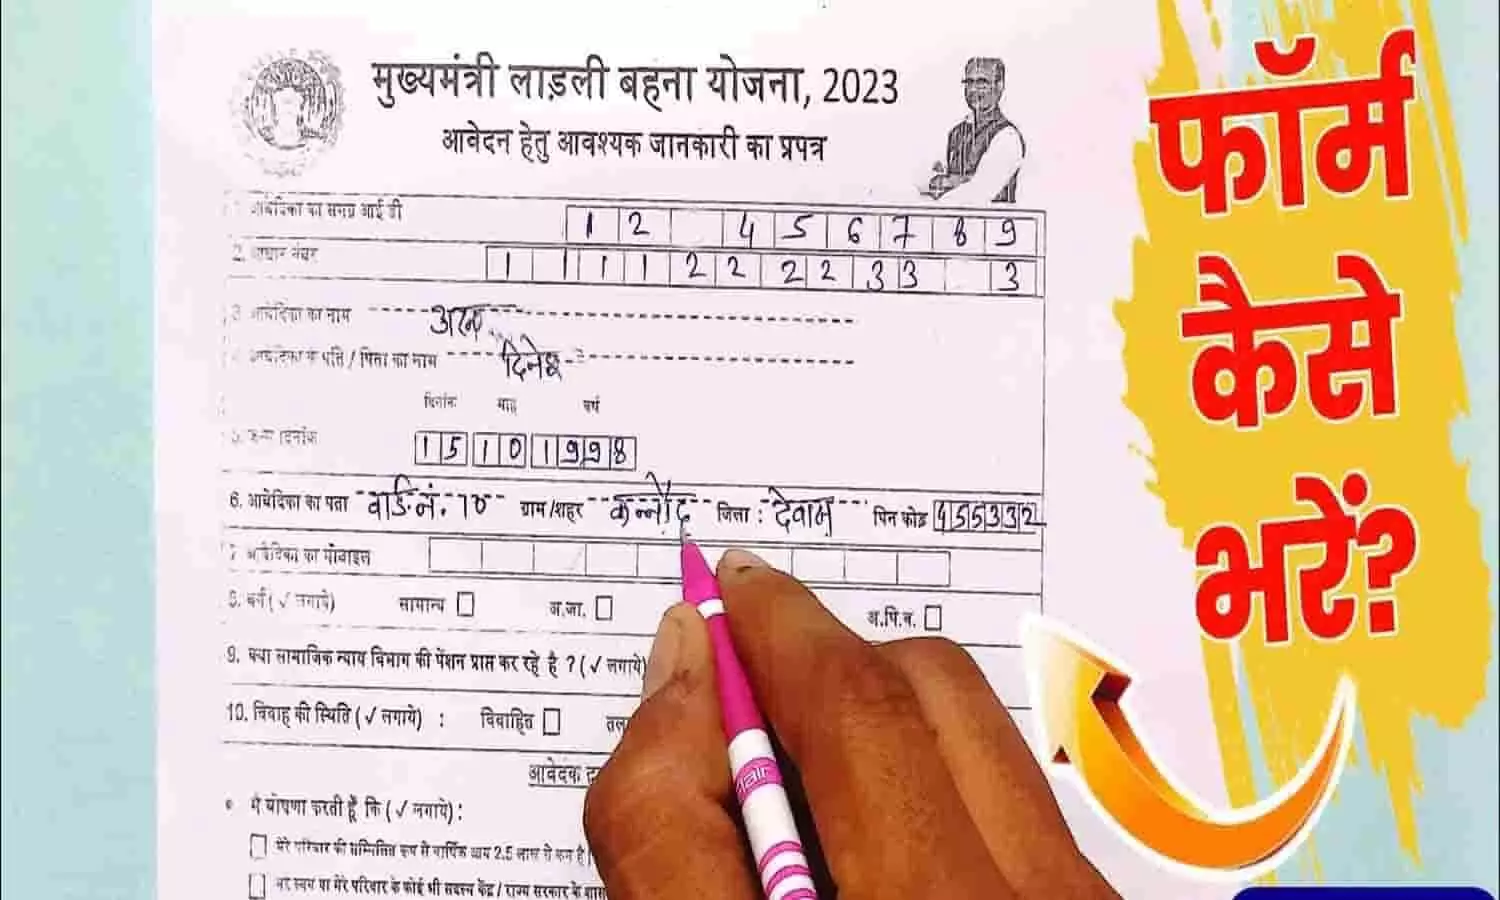 मुख्यमंत्री लाड़ली बहना योजना, 2023
आवेदन हेतु आवश्यक जानकारी का प्रपत्र
आवेदिका का समग्र आई डी 1 2 4 5 6 7 8 9
2. आधार नंबर 1 1 1 1 2 2 2 2 3 3 3
3. आवेदिका का नाम
आवेदिका के पति / पिता का नाम दिनेश
दिनांक माह वर्ष
5. जन्म दिनांक 1 5 1 0 1 9 9 8
6. आवेदिका का पता वार्ड नं. 10 ग्राम/शहर कन्नौद जिला : देवास पिन कोड 455332
7. आवेदिका का मोबाइल
8. वर्ग (✓ लगाये) सामान्य अ.जा. अ.पि.व.
9. क्या सामाजिक न्याय विभाग की पेंशन प्राप्त कर रहे है ? (✓ लगाये)
10. विवाह की स्थिति (✓ लगाये) : विवाहित
आवेदक
• मैं घोषणा करती हूँ कि (✓ लगाये) :
मेरे परिवार की सम्मिलित रूप से वार्षिक आय 2.5 लाख से कम है
मेरे स्वयं या मेरे परिवार के कोई भी सदस्य केंद्र / राज्य सरकार के
फॉर्म
कैसे
भरें?